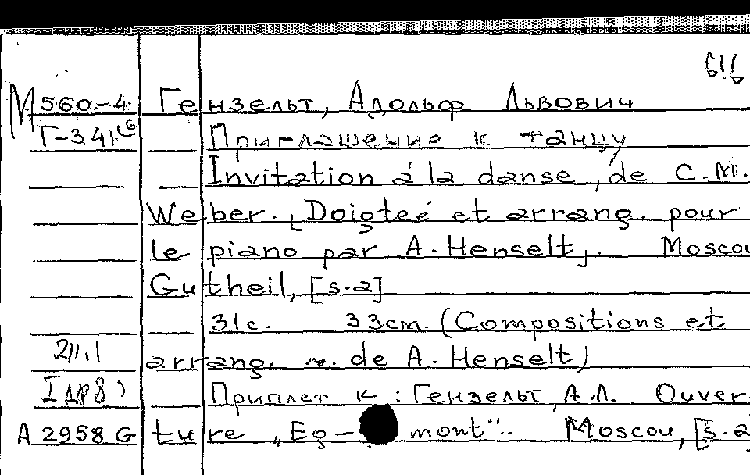 М 560-4 Гензельт, Адольф Львович
Г-341 Приглашение к танцу
Invitation à la danse, de C.M.
Weber. [Doigteé et arrang. pour
le piano par A. Henselt]. Moscou
Gutheil, [s.a]
31с. 33cm. (Compositions et
arrang. de A. Henselt)
Приплет к: Гензельт, А.Л. Ouver-
A 2958 G ture „Eg-mont". Moscou, [s.a